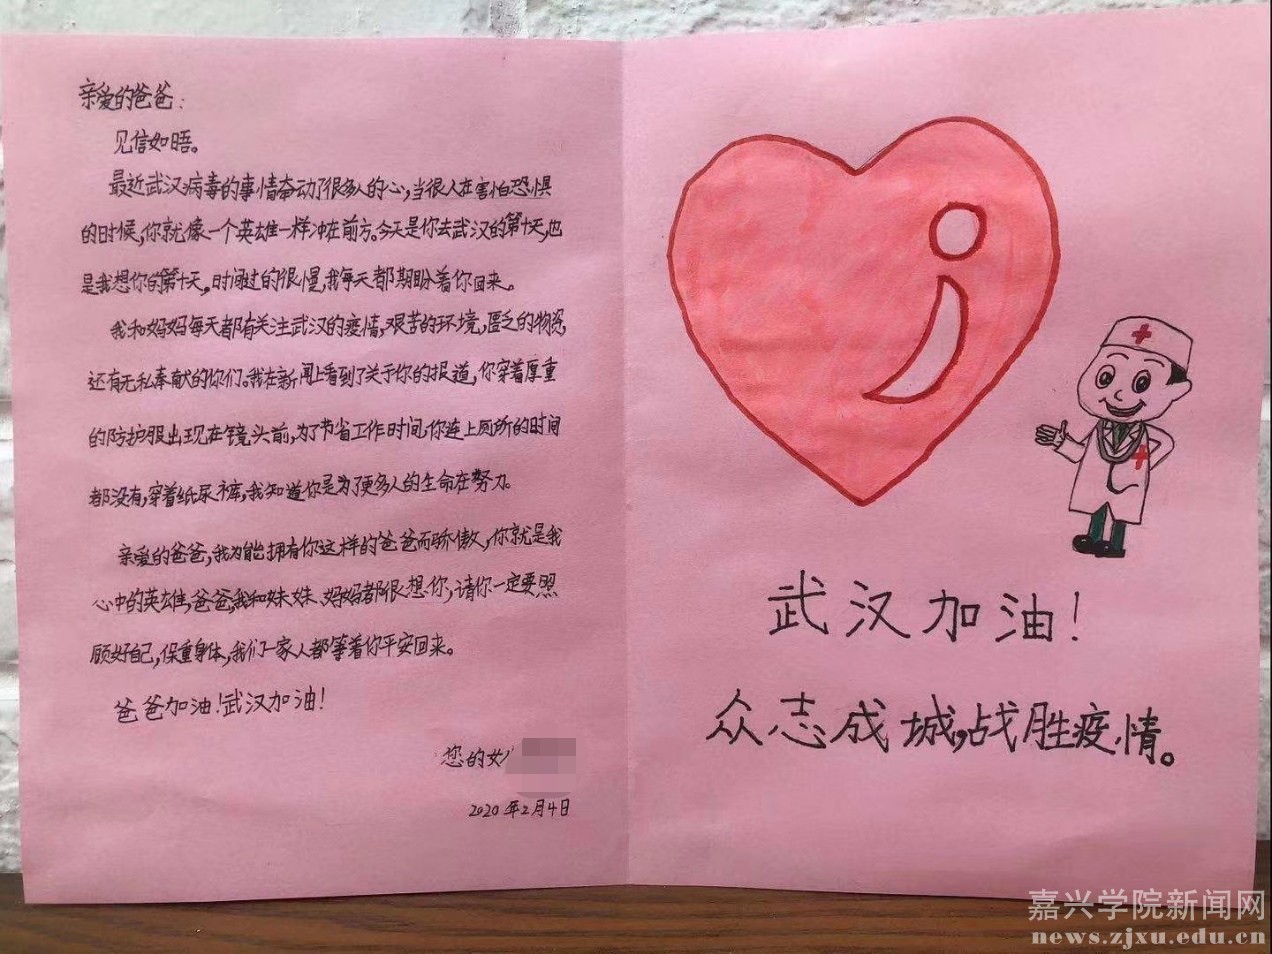 亲爱的爸爸:
见信如晤。
最近武汉病毒的事情牵动了很多人的心,当很人在害怕恐惧
的时候,你就像一个英雄一样冲在前方。今天是你去武汉的第十天,也
是我想你的第十天。时间过的很慢,我每天都期盼着你回来。
我和妈妈每天都有关注武汉的疫情,艰苦的环境,匮乏的物资,
还有无私奉献的你们。我在新闻上看到了关于你的报道,你穿着厚重
的防护服出现在镜头前,为了节省工作时间,你连上厕所的时间
都没有,穿着纸尿裤,我知道你是为了更多人的生命在努力。
亲爱的爸爸,我为能拥有你这样的爸爸而骄傲,你就是我
心中的英雄,爸爸,我和妹妹、妈妈都很想你,请你一定要照
顾好自己,保重身体,我们一家人都等着你平安回来。
爸爸加油!武汉加油!
您的女
2020年2月4日
武汉加油!
众志成城,战胜疫情。
嘉兴学院新闻网
news.zjxu.edu.cn